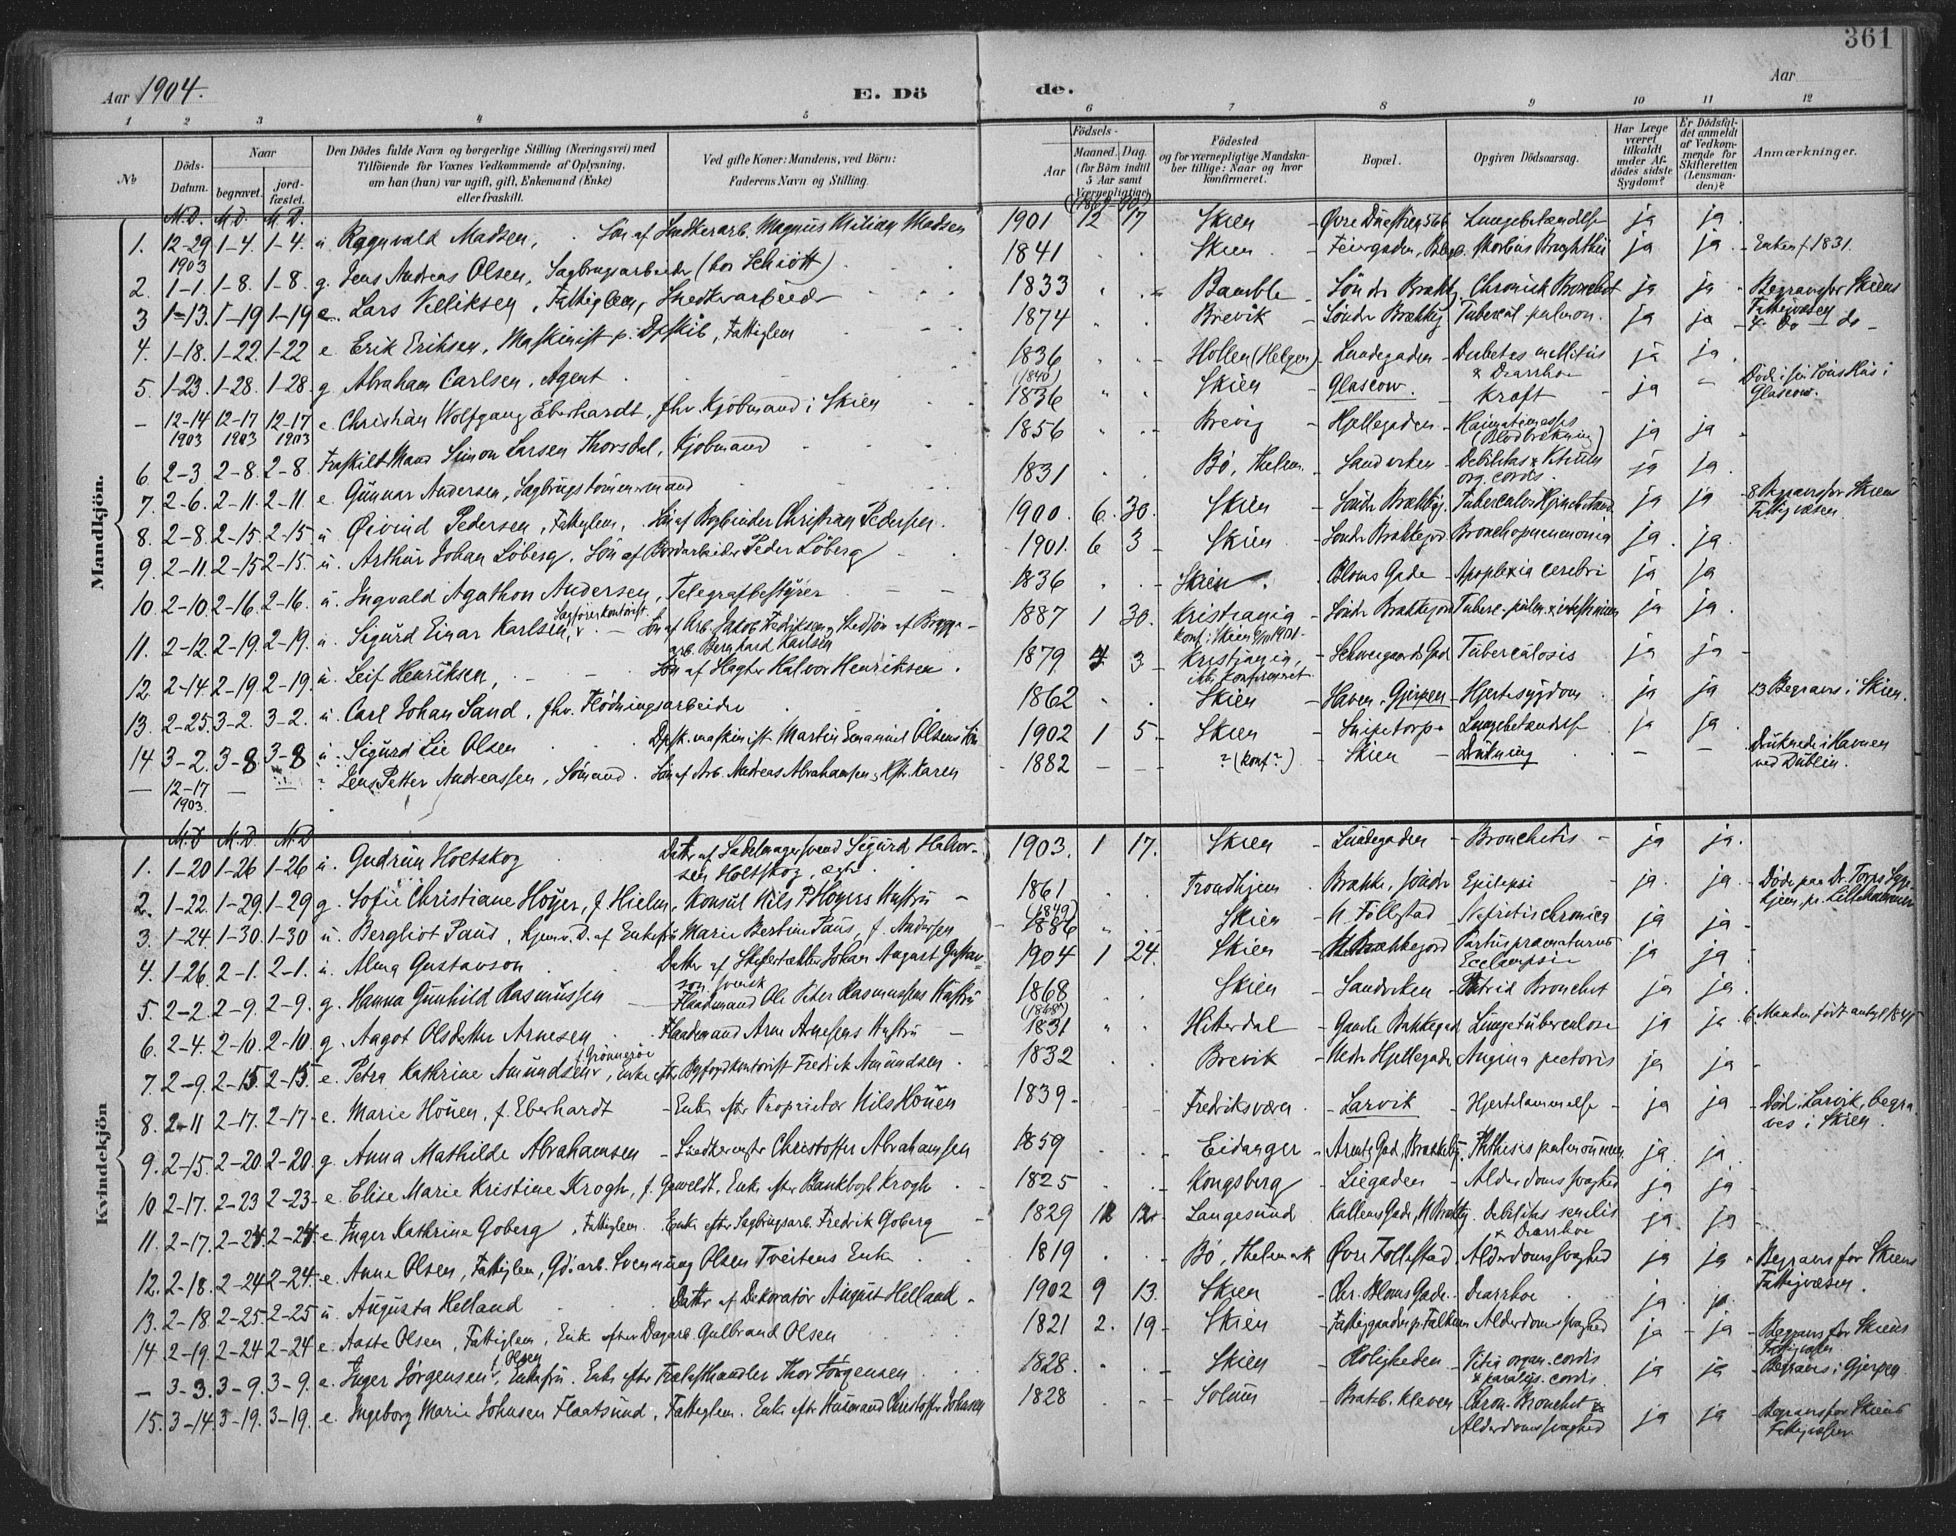 361
Aar 1904. E. Dö
de. Aar
1 2 3 4 5
6 7 8 9 10 11 12
No
Döds-Datum.
Naar
begravet.
jordfæstet.
Den Dödes fulde Navn og borgerlige Stilling (Næringsvei) med
Tilföiende for Voxnes Vedkommende af Oplysning,
om han (hun) var ugift, gift, Enkemand (Enke)
eller fraskilt.
Ved gifte Koner: Mandens, ved Börn:
Faderens Navn og Stilling.
Födsels-
Aar
Maaned. Dag.
(for Börn indtil
5 Aar samt
Værnepligtige)
Födested
og for værnepligtige Mandskaber tillige: Naar og hvor
konfirmeret.
Bopæl.
Opgiven Dödsaarsag.
Har Læge været tilkaldt under Afdödes sidste Sygdom?
Er Dödsfaldet anmeldt af Vedkommende for Skifteretten (Lensmanden)?
Anmærkninger.
Mandkjön.
M.D. M.D. M.D.
1. 12-29 1903 1-4. 1-4. u. Ragnvald Madsen, Sön af Snedkerarb. Magnus Milian Madsen 1901 12 17 Skien Øvre 566 Lungebetændelse ja ja
2. 1-1. 1-8. 1-8. g. Jens Andreas Olsen, Sagbrugsarbeider (hos Schiött) 1841 Skien Feiergaden, Morbus Brightii ja ja Enken f. 1831.
3 1-13. 1-19 1-19 e. Lars Velliksen, Fattiglem, Snedkerarbeider 1833 Bamble Söndr Brækkj. Chronisk Bronchit ja ja Begraves for Skiens Fattigvæsen
4. 1-18. 1-22. 1-22 e. Erik Eriksen, Maskinist p. Dpskib, Fattiglem 1874 Brevik Söndr Brækkj. Tubercul. pulmon. ja ja 4. do do
5. 1-23. 1-28. 1-28. g. Abraham Carlsen, Agent 1836 Hollen (Helgen) Lundegaden Diabetes mellitus & Diarrhoe ja ja
— 12-14 1903 12-17 1903 12-17 1903 e. Christian Wolfgang Eberhardt, fhv. Kjöbmand i Skien (1840) 1836 Skien Glascow. Kræft ja — Död i sin Söns Hus i Glascow.
6. 2-3 2-8. 2-8. Fraskilt Mand Simon Larsen Thorsdal, Kjöbmand 1856 Brevig Hjellegaden Haimatemesis (Blodbrækning) ja ja
7. 2-6. 2-11. 2-11 e. Gunnar Andersen, Sagbrugstömmermand 1831 Bö, Thelem. Sandviken Debilitas & Vitium org. cordis ja ja
8. 2-8. 2-15. 2-15 u Øivind Pedersen, Fattiglem, Sön af Bogbinder Christian Pedersen. 1900. 6. 30. Skien Söndr Brækkj. ja ja 8 Begraves for Skiens Fattigvæsen.
9. 2-11. 2-15 2-15. u. Arthur Johan Löberg, Sön af Bordarbeider Peder Löberg 1901. 6 3 Skien Söndr Brækkegd Bronchopneumonia ja ja
10. 2-10. 2-16. 2-16. u. Ingvald Agathon Andersen, Telegrafbestyrer 1836 Skien Bloms Gade Apoplexia cerebri ja ja
11. 2-12. 2-19. 2-19. u. Sigurd Einar Karlsen, Sagförerkontorist Sön af Arb. Jakob Fredriksen, Stedsön af Bryggearb. Bernhard Karlsen 1887 1 30. Kristiania konf. i Skien 1901. Söndr Brækkegd Tuberc. pulm. & intestinum ja ja
12. 2-14. 2-19 2-19. u. Leif Henriksen, Sön af Slagter Halvor Henriksen. 1879 4 3 Kristiania, ikke konfirmeret Schweigaards Gad Tuberculosis ja ja
13. 2-25. 3-2. 3-2. u. Carl Johan Sand, fhv. Flödningsarbeider 1862 Skien Haven, Gjerpen Hjertesygdom ja ja 13 Begraves i Skien.
14 3-2. 3-8 3-8 u. Sigurd Lie Olsen Dpsk.maskinist Martin Emanuel Olsens Sön 1902 1 5 Skien Snipetorp Lungebetændelse ja ja
— 12-17 1903. — — ? Lens Petter Andreassen, Sömand. Sön af Arb. Andreas Abrahamsen & Hstr. Karen 1882 — — ? (konf?) Skien Drukning — — Druknede i Havnen ved Dublin.
Kvindekjön
M.D M.D M.D
1. 1-20 1-26 1-26 u. Gudrun Holtskog Datter af Sadelmagersvend Sigurd Halvorsen Holtskog, ægte 1903. 1 17. Skien Lundegaden Bronchitis ja ja.
2. 1-22. 1-29. 1-29 g. Sofie Christiane Höyer, f. Hielm, Konsul Nils P Höyers Hustru 1861 Trondhjem Brække, söndr Epilepsi ja. ja. Döde paa Dr. Torps Sygehjem pr. Lillehammer
3. 1-24. 1-30. 1-30 u. Bergliot Paus, Hjemv. D. af Enkefru Marie Bertine Paus, f. Andersen (1849) 1886 Skien N. Follestad Nefritis chronica ja ja
4. 1-26. 2-1. 2-1. u. Alma Gustavson Datter af Skifertækker Johan August Gustavson svensk 1904 1 24. Skien N. Brækkegd Partus præmaturus Ecclampsie ja ja
5. 2-2. 2-9. 2-9. g. Hanna Gunhild Rasmussen Handmand Ole Peter Rasmussens Hustru 1868 Skien Sandviken Putrid Bronchit ja ja.
6. 2-4. 2-10. 2-10. g. Aagot Olsdatter Arnesen Handmand Arne Arnesens Hustru (1848) 1831 Hitterdal Gamle Bakkegad Lungetuberculose ja ja 6. Manden födt antagl 1845
7. 2-9. 2-15 2-15. e. Petra Kathrine Amundsen, f. Grönneröe, Enke efter Bygfogdkontorist Fredrik Amundsen 1832 Brevik Nedr Hjellegade Angina pectoris ja ja
8. 2-11 2-17. 2-17 e. Marie Höuen, f. Eberhardt Enke efter Proprietær Nils Höuen 1839. Fredriksværn Larvik Hjertelammelse ja ja Död i Larvik, begraves i Skien.
9. 2-15. 2-20 2-20. g. Anna Mathilde Abrahamsen Snedkermester Christoffer Abrahamsen 1859 Eidanger Arents Gad, Brækkebj. Phthisis pulmonum ja ja
10 2-17. 2-23 2-23 e. Elise Marie Kristine Krogh, f. Gaveldt, Enke efter Bankbogh Krogh 1825 Kongsberg Liegaden Alderdomssvaghed ja ja
11. 2-17. 2-24. 2-24 e. Inger Kathrine Goberg, Fattiglem. Enke efter Sagbrugsarb. Fredrik Goberg 1829 12 12 Langesund Kallens Gade, N Brækkj. Debilitas senilis & Diarrhoe ja. ja
12. 2-18. 2-24 2-24. e. Anne Olsen, Fattiglem, Gd.arb. Svennung Olsen Tveitens Enke 1819 Bö, Thelemark Øvre Follestad Alderdomssvaghed ja ja Begraves for Skiens Fattigvæsen.
13. 2-18. 2-25. 2-25 u. Augusta Helland Datter af Dekoratör August Helland 1902 9 13. Skien Chr. Bloms Gade Diarrhoe ja ja
14 2-19. 2-24 2-24 e. Aaste Olsen, Fattiglem, Enke efter Dagarb. Gulbrand Olsen 1821 2. 19 Skien Fattiggaarden p. Falkum Alderdomssvaghed ja ja Begraves for Skiens Fattigvæsen
— 3-3. 3-9. 3-9. e. Inger Jörgensen f. Olsen, Enkefru. Enke efter Trælasthandler Thor Jörgensen 1828. Skien Roligheden Vitia organ. cordis & paralys. cordis ja ja Begraves i Gjerpen
15. 3-14. 3-19. 3-19. e. Ingeborg Marie Johnsen Flaatsund, Fattiglem. Enke efter Husmand Christoffer Johnsen 1828 Solum Bratsb. Kleven Chron. Bronchit & Alderdomssvaghed ja ja Begraves for Skiens Fattigvæsen